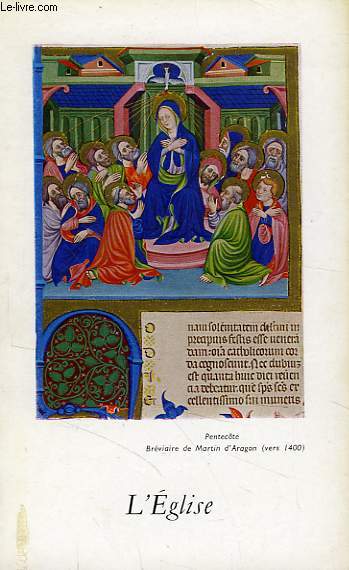 © Le-livre.com
nam solenitatem dilecti in
precipuis festis esse venera
dam: oia catholicorum cor
da cognoscunt. Nec dubium
est quanta huic diei reveren
cia debeatur. que sps scs ex
cellentissimo sui muneris
Pentecôte
Bréviaire de Martin d'Aragon (vers 1400)
L'Église